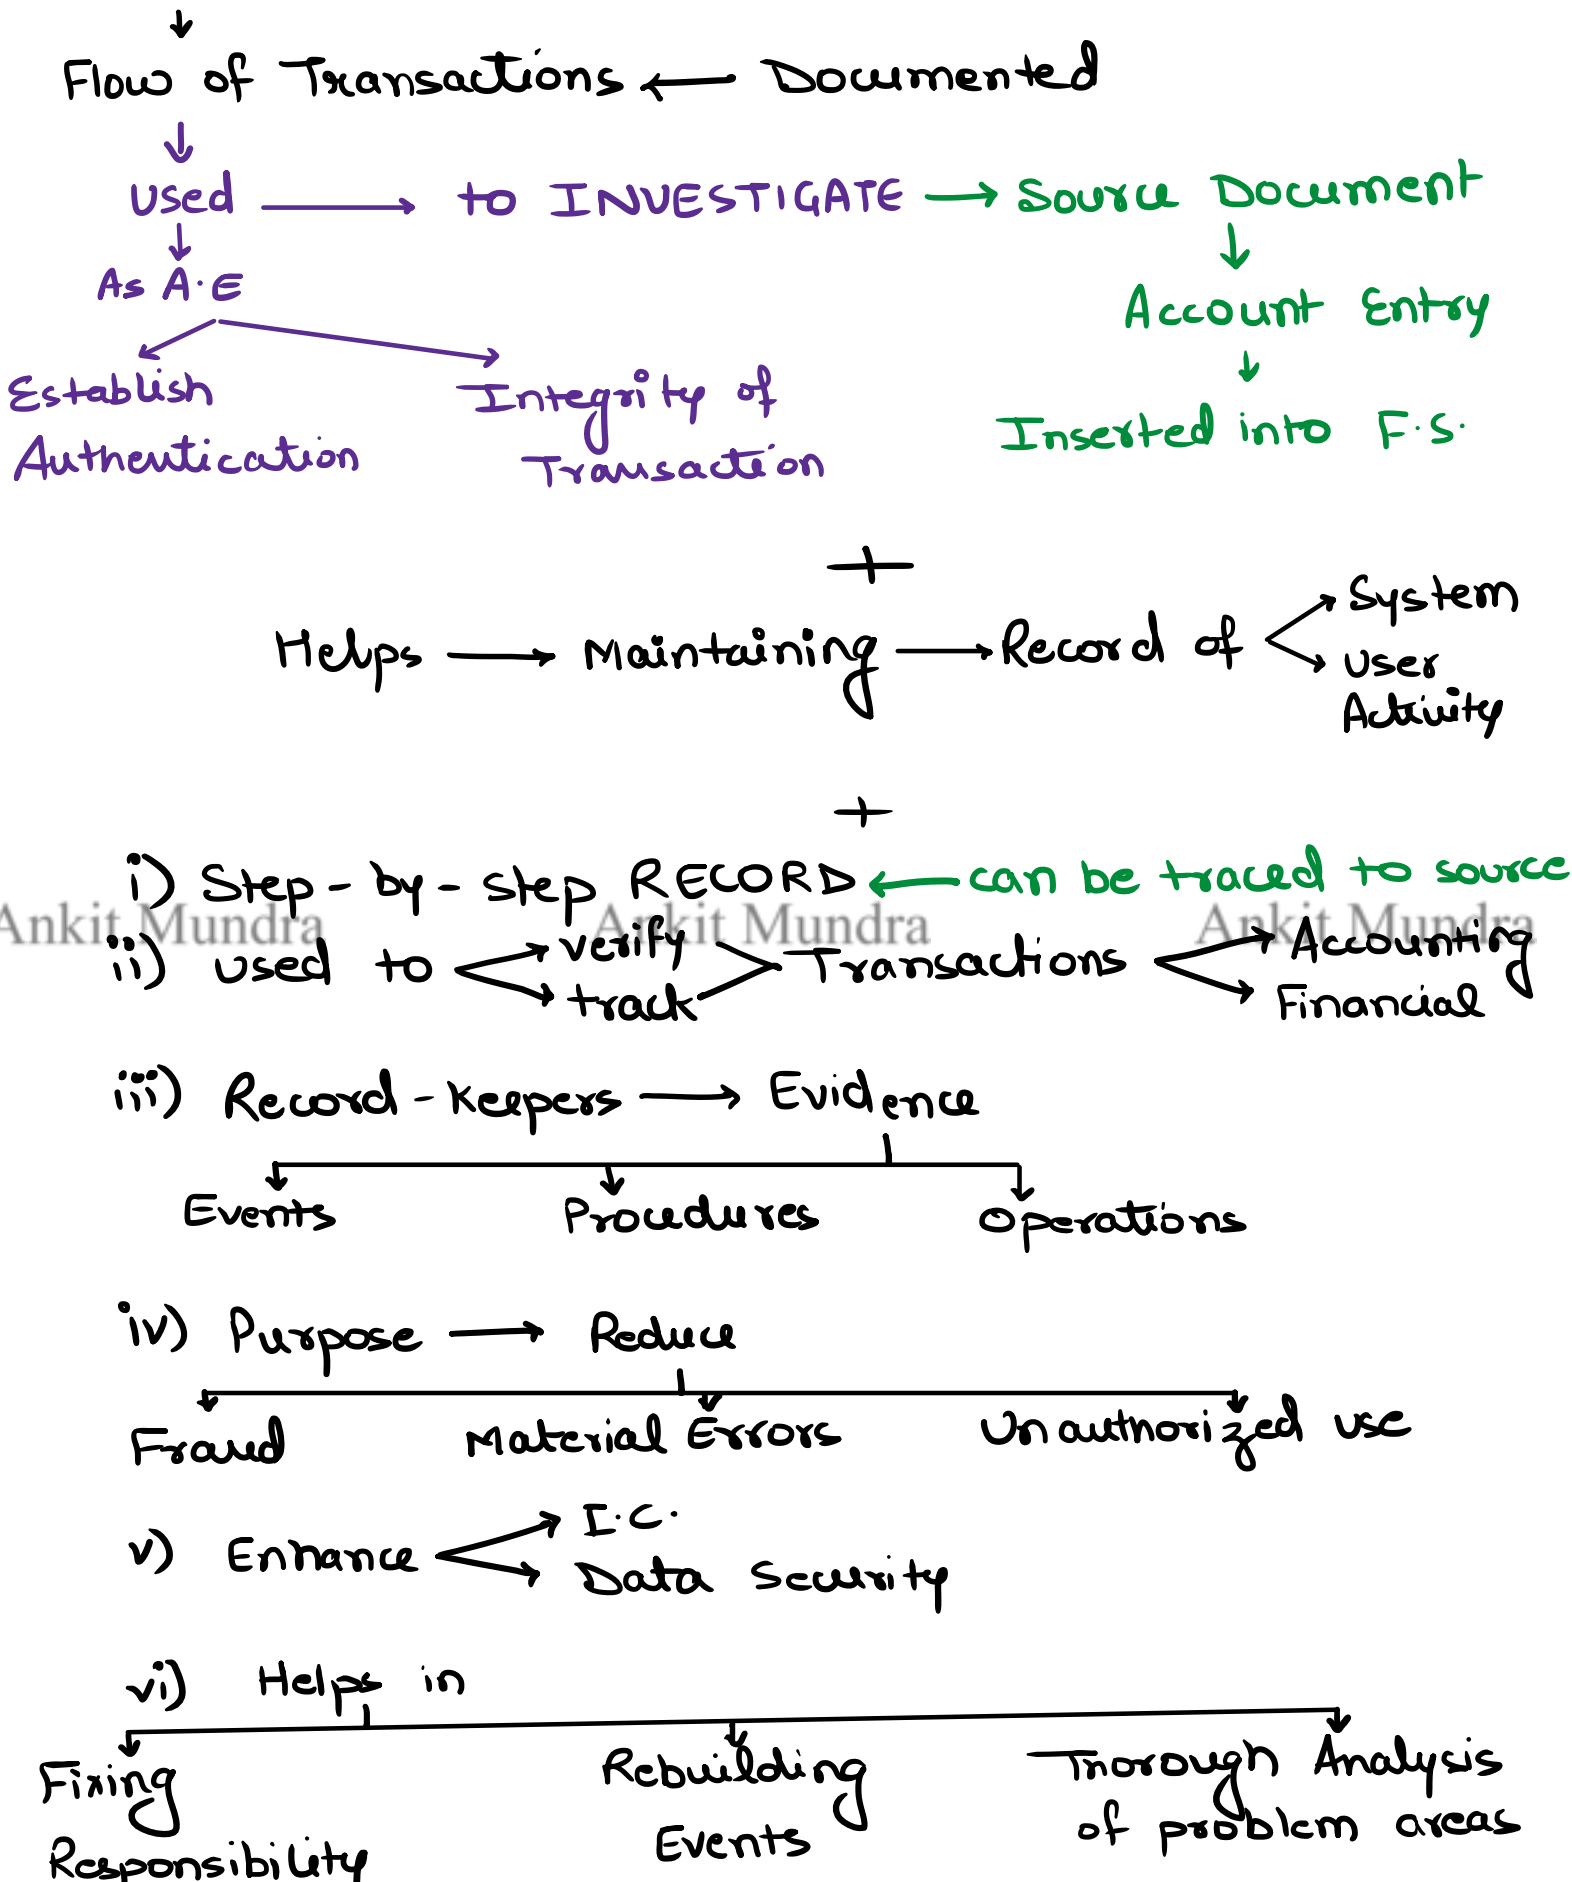 ↓
Flow of Transactions ← Documented
↓
Used → to INVESTIGATE → Source Document
↓ ↓
As A.E Account Entry
↓
Establish Authentication
Integrity of Transaction
Inserted into F.S.
+
Helps → Maintaining → Record of → System
→ User Activity
+
i) Step-by-step RECORD ← can be traced to source
Ankit Mundra Ankit Mundra Ankit Mundra
ii) Used to → verify → track > Transactions → Accounting → Financial
iii) Record-keepers → Evidence
Events Procedures Operations
iv) Purpose → Reduce
Fraud Material Errors Unauthorized use
v) Enhance → I.C.
→ Data Security
vi) Helps in
Fixing Responsibility
Rebuilding Events
Thorough Analysis of problem areas